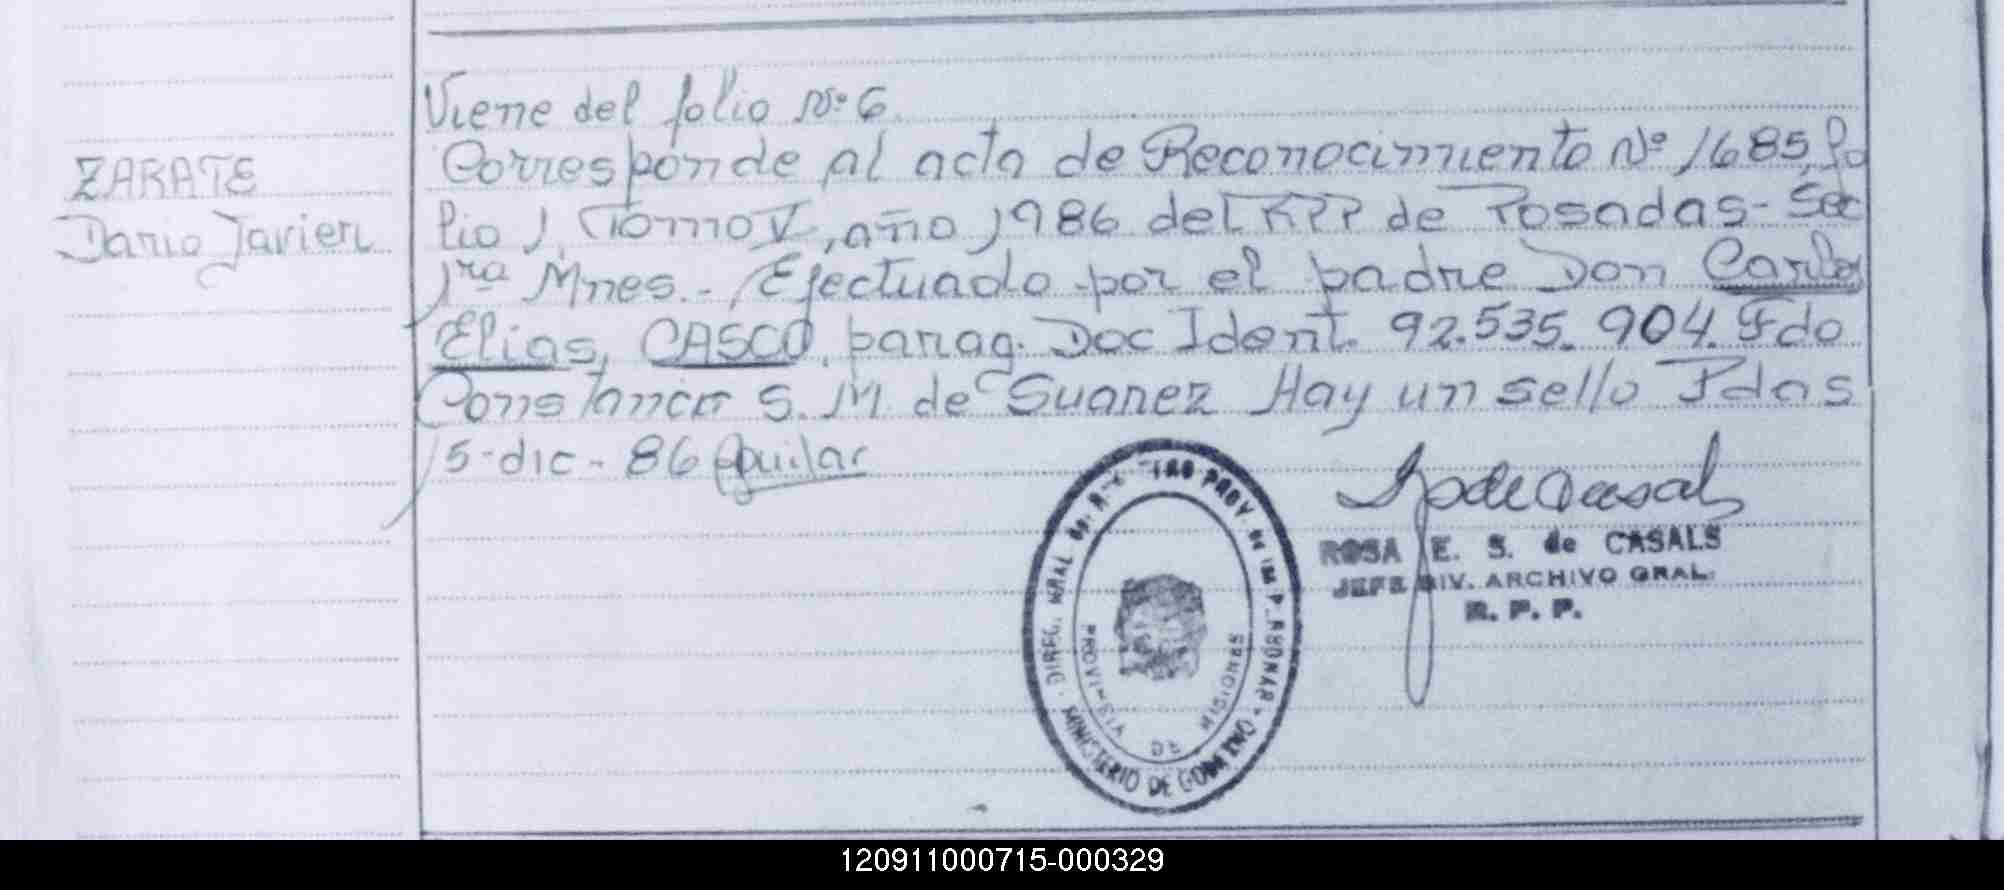 Viene del folio Nº 6.
ZARATE
Dario Javier
Corresponde al acta de Reconocimiento Nº 1685, fo
lio 1, Tomo V, año 1986 del RPP de Posadas - Sec
1ra Mnes. - Efectuado por el padre Don Carlos
Elias, CASCO, parag. Doc Ident. 92.535.904. Fdo
Constancia S. M. de Suarez Hay un sello Pdas
15-dic-86 Aguilar
ROSA E. S. de CASALS
JEFE DIV. ARCHIVO GRAL.
R. P. P.
DIREC. GRAL DE PROV. DE
MINISTERIO DE GOBIERNO
PROVINCIA DE MISIONES
120911000715-000329